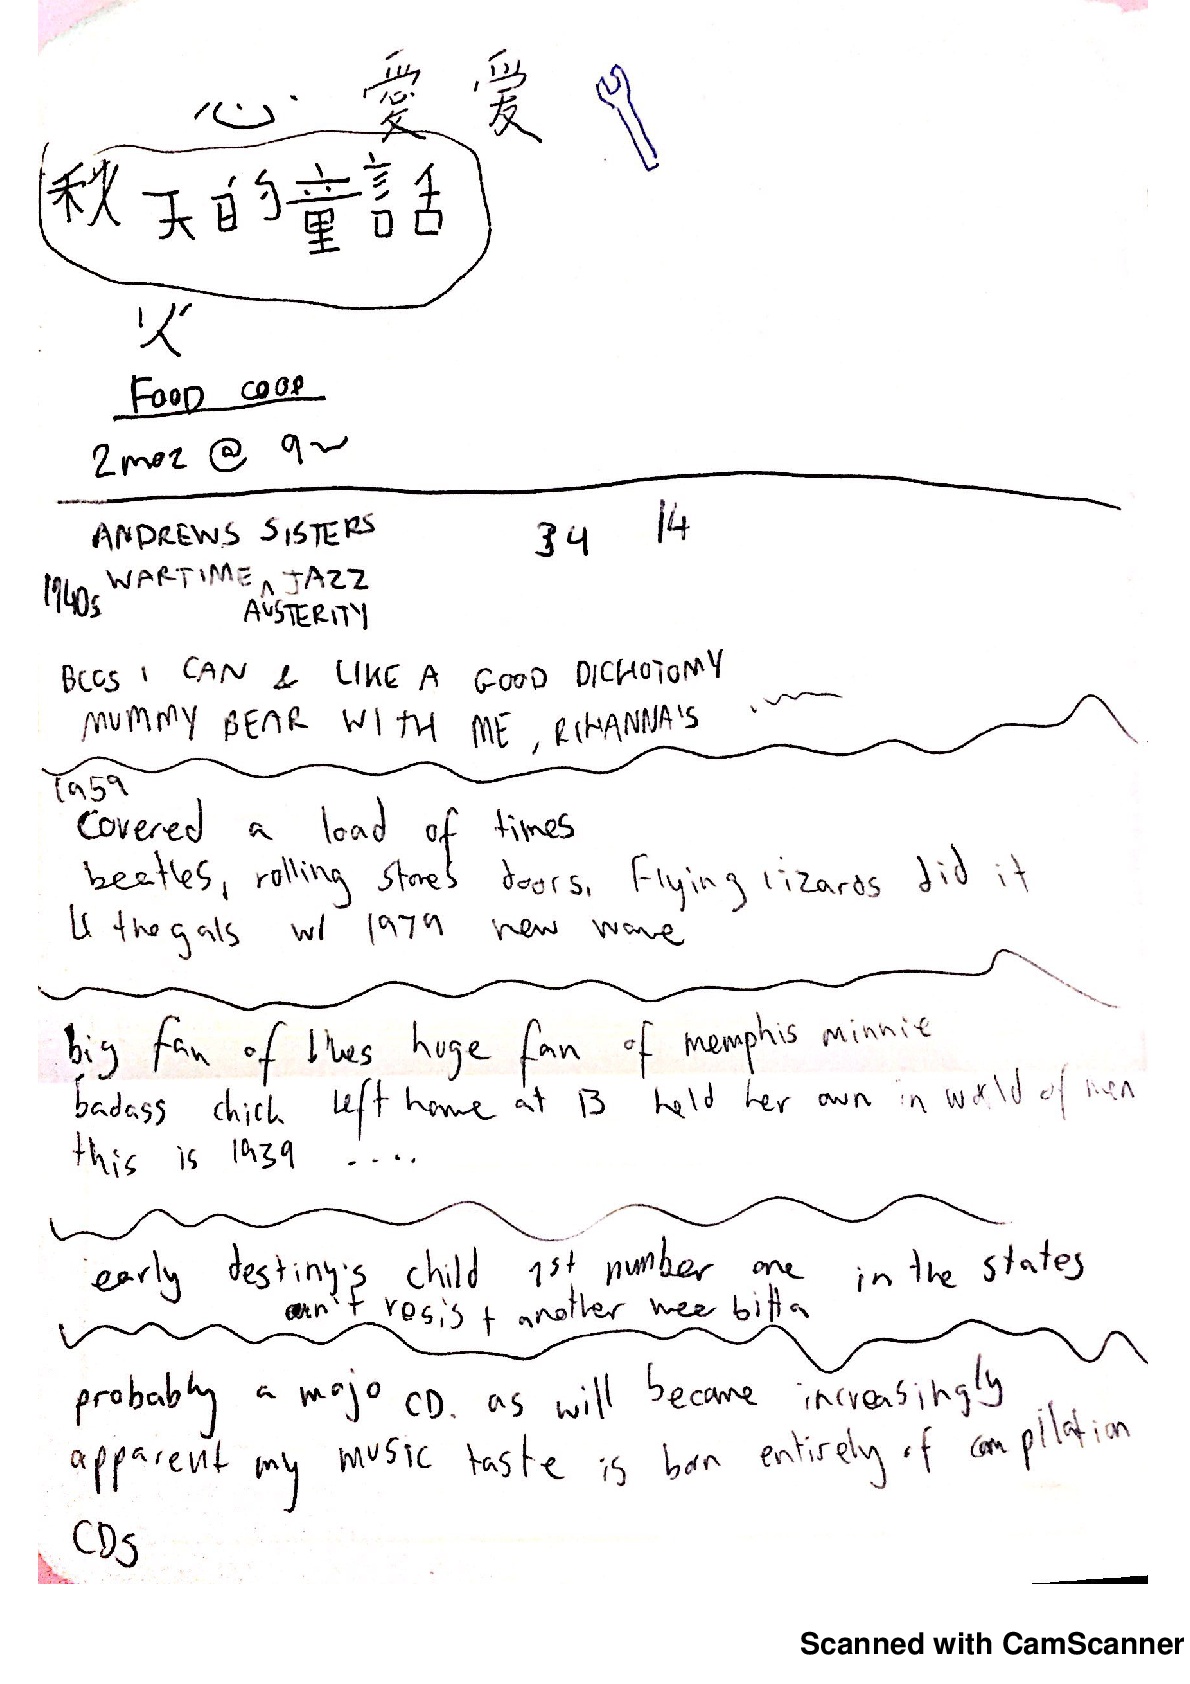 心 愛 爱
秋天的童話
火
FOOD COOP
2moz @ 9
ANDREWS SISTERS 34 14
1940s WARTIME ^ JAZZ
AUSTERITY
BCOS I CAN & LIKE A GOOD DICHOTOMY
MUMMY BEAR WITH ME, RIHANNA'S
1959
Covered a load of times
beatles, rolling stones doors, Flying lizards did it
4 the gals w/ 1979 new wave
big fan of blues huge fan of memphis minnie
badass chick left home at 13 held her own in world of men
this is 1939 ....
early destiny's child 1st number one in the states
can't resist another wee bitta
probably a mojo CD. as will become increasingly
apparent my music taste is born entirely of compilation
CDs
Scanned with CamScanner